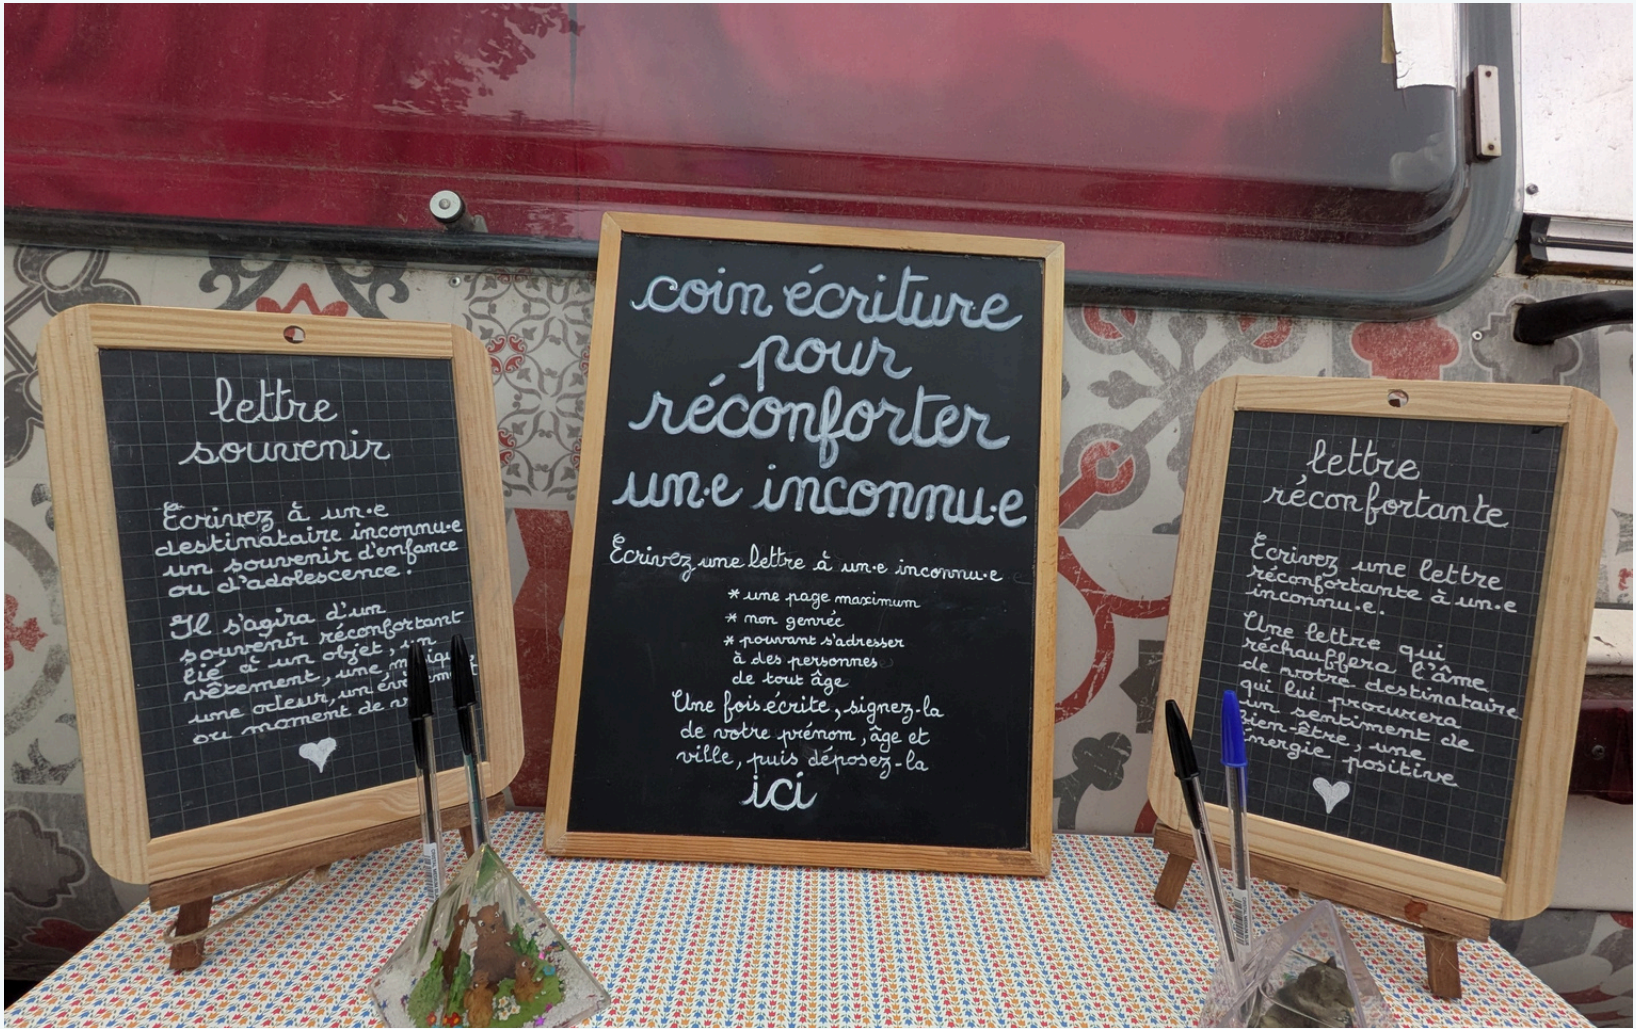 lettre
souvenir
Écrivez à un·e
destinataire inconnu·e
un souvenir d'enfance
ou d'adolescence.
Il s'agira d'un
souvenir réconfortant
lié à un objet, un
vêtement, une
une odeur, un
ou moment de
coin écriture
pour
réconforter
un·e inconnu·e
Écrivez une lettre à un·e inconnu·e
* une page maximum
* non genrée
* pouvant s'adresser
à des personnes
de tout âge
Une fois écrite, signez-la
de votre prénom, âge et
ville, puis déposez-la
ici
lettre
réconfortante
Écrivez une lettre
réconfortante à un·e
inconnu·e.
Une lettre qui
réchauffera l'âme
de votre destinataire
qui lui procurera
un sentiment de
bien-être, une
énergie positive